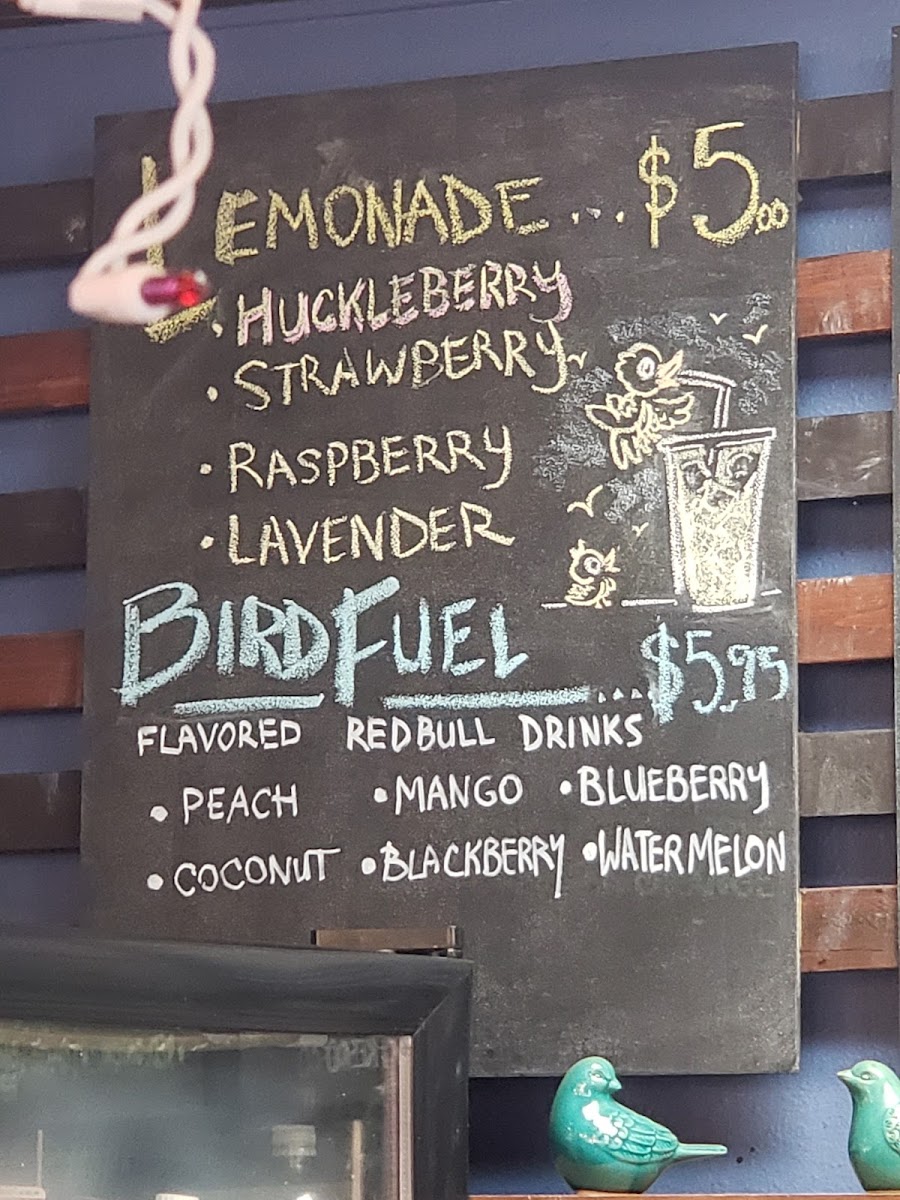 LEMONADE...$5.00
• HUCKLEBERRY
• STRAWBERRY
• RASPBERRY
• LAVENDER
BIRD FUEL....$5.95
FLAVORED REDBULL DRINKS
• PEACH • MANGO • BLUEBERRY
• COCONUT • BLACKBERRY • WATERMELON